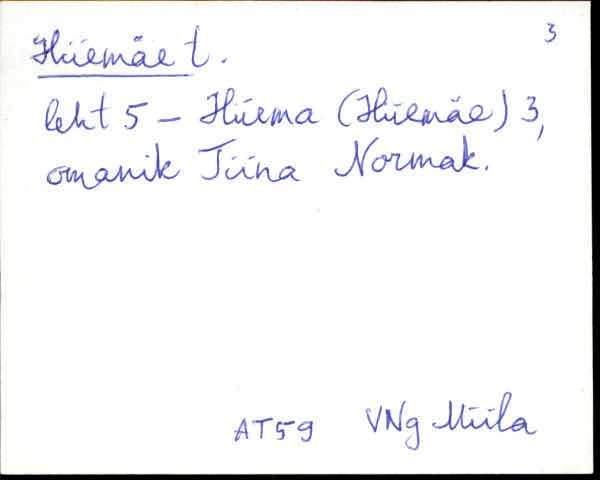 3
Hiiemäe t.
leht 5 – Hiiema (Hiiemäe) 3,
omanik Tiina Normak.
AT59 VNg Miila